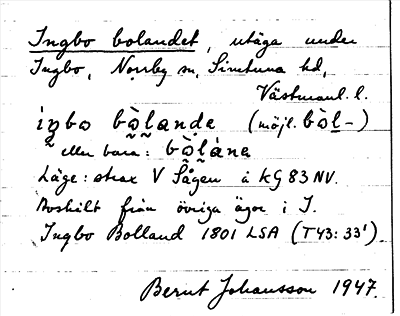 Ingbo bolandet, utäga under
Ingbo, Norrby sn, Simtuna hd,
Västmanl. l.
ìŋbo bòlande (möjl. bòl-)
eller bara: bòlàne
Läge: strax V Sågen å kG 83 NV.
Avskilt från övriga ägor i I.
Ingbo Bolland 1801 LSA (T43:33¹).
Bernt Johansson 1947.